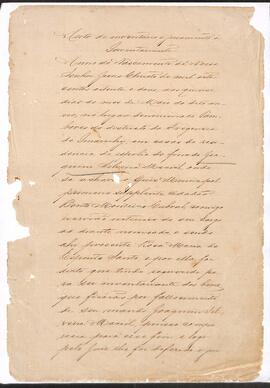 Auto de inventario e juramento a
Inventariante
Anno do Nascimento de Nosso
Senhor Jesus Christo de mil oito
centos oitenta e dous, aos
dias do mez de Maio do dito an
no, no lugar denominado Cam
boas do districto da Freguesia
de em casas de re
sidencia do finado Joa
quim Silveira Maciel, onde
se achava o Juiz Municipal
primeiro supplente cidadão
Bento Monteiro Cabral comigo
escrivão interino de seu cargo
ao diante nomeado e sendo
ahi presente Rosa Maria do
Espirito Santo e por ella foi
dito que tendo requerido pa
ra ser inventariante dos bens
que ficarão por fallecimento
de seu marido Joaquim Sil
veira Maciel, compa
recia para esse fim e logo
pelo Juiz lhe foi deferido o